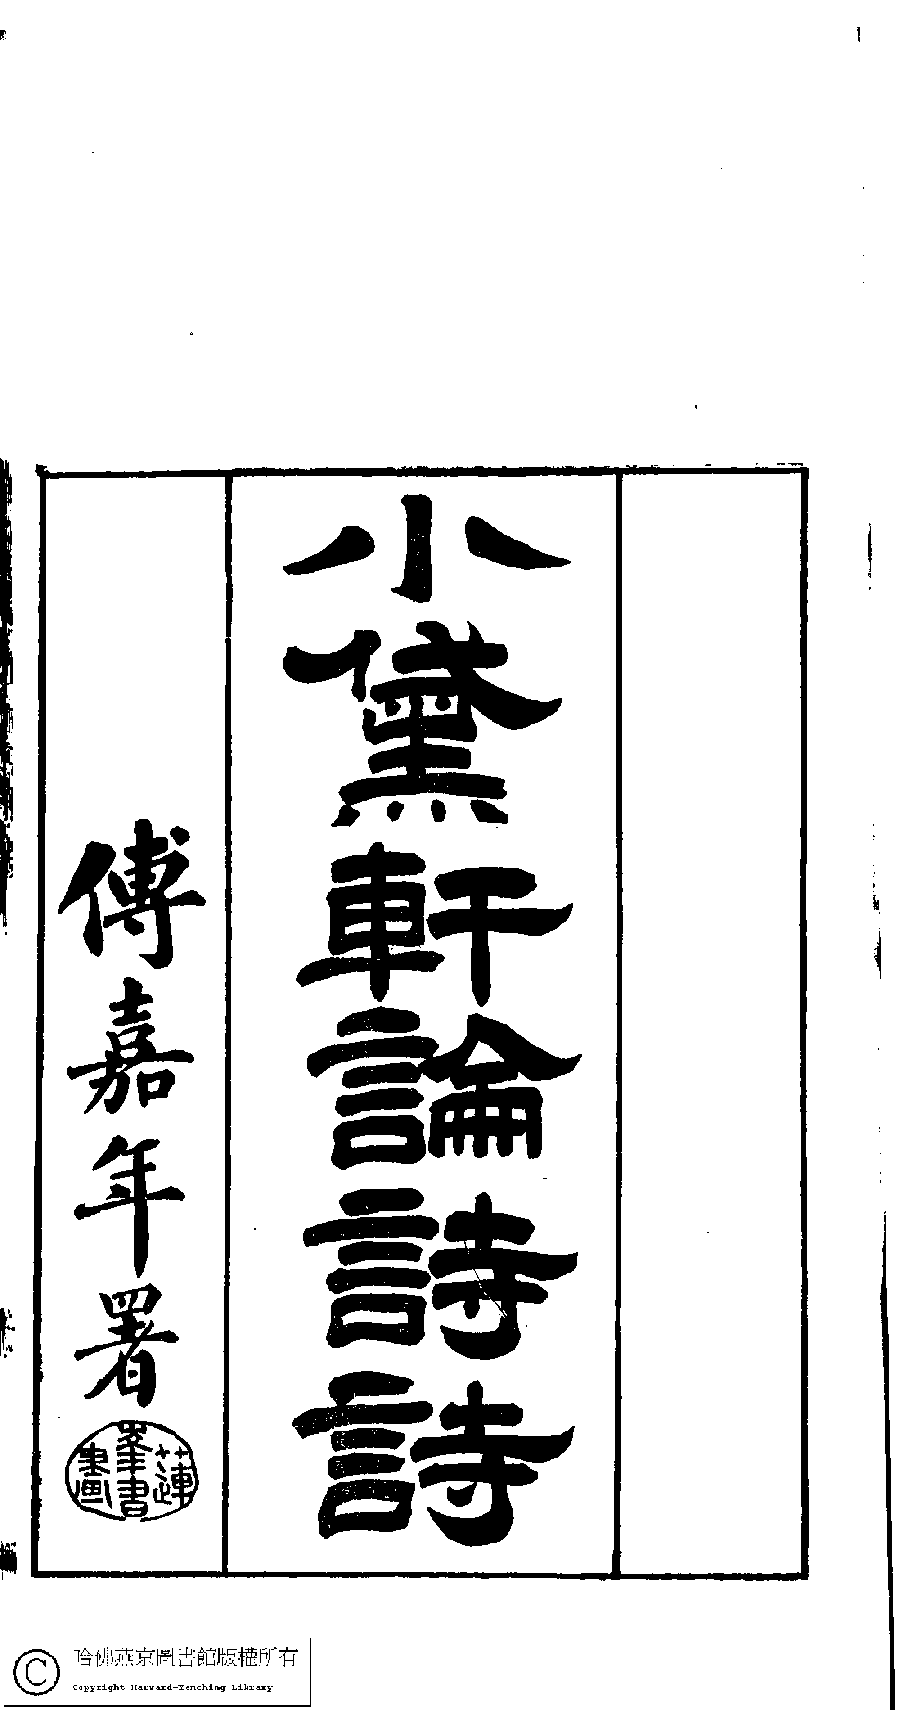 小黛軒論詩詩
傅嘉年署
蓮峯書畫
哈佛燕京圖書館版權所有
Copyright Harvard-Yenching Library